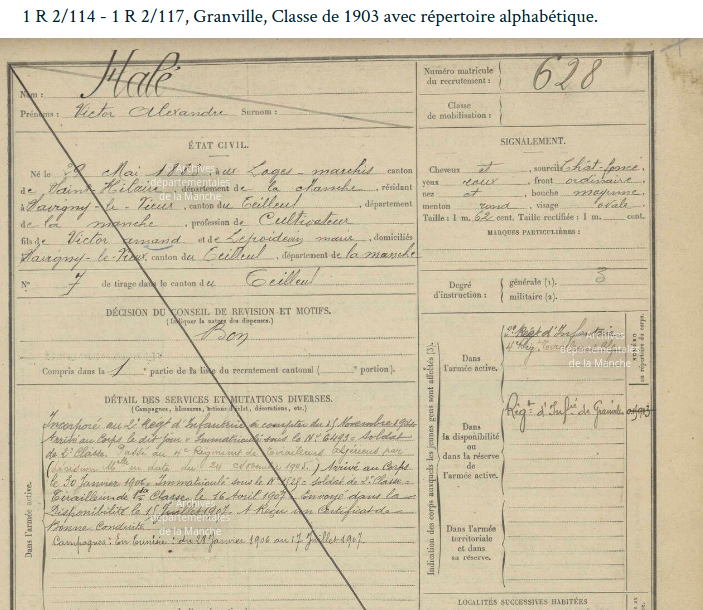 1 R 2/114 - 1 R 2/117, Granville, Classe de 1903 avec répertoire alphabétique.
Nom : Halé
Prénoms : Victor Alexandre Surnom :
Numéro matricule du recrutement : 628
Classe de mobilisation :
ÉTAT CIVIL.
Né le 29 Mai à aux Loges-marchis canton
de Saint Hilaire, département de la Manche, résidant
à Savigny-le-Vieux, canton du Teilleul, département
de la manche, profession de Cultivateur
fils de Victor armand et de domiciliés
Savigny-le-Vieux, canton du Teilleul, département de la manche
N° 7 de tirage dans le canton du Teilleul
SIGNALEMENT.
Cheveux et sourcils chât-foncé
yeux roux, front ordinaire
nez et, bouche moyenne
menton rond, visage ovale
Taille : 1 m. 62 cent. Taille rectifiée : 1 m. cent.
MARQUES PARTICULIÈRES :
Degré d'instruction : générale (1). 3
militaire (2).
DÉCISION DU CONSEIL DE REVISION ET MOTIFS.
(Indiquer la nature des dispenses.)
Bon
Compris dans la 1 partie de la liste du recrutement cantonal ( portion).
DÉTAIL DES SERVICES ET MUTATIONS DIVERSES.
(Campagnes, blessures, actions d'éclat, décorations, etc.)
Dans l'armée active.
Incorporé au 2e Regt d'Infanterie à compter du 15 Novembre
Arrivé au Corps le dit jour = Immatriculé sous le N° 6493 = Soldat
de 2e Classe. Passé au 4e Régiment de Tirailleurs Algériens par
en date du 24 1905. Arrivé au Corps
le 30 Janvier 1906 = Immatriculé sous le N° = soldat de 2e Classe =
Tirailleur de 1ère Classe le 16 Avril 1907 = Envoyé dans la
Disponibilité le Juillet 1907. A Reçu un Certificat de
Bonne Conduite
Campagnes : En Tunisie : du 28 Janvier 1906 au 17 Juillet 1907.
Indication des corps auxquels les jeunes gens sont affectés (3).
Dans l'armée active.
2e Régt d'Infanterie
4e Rég. Tirailleurs
Dans la disponibilité ou dans la réserve de l'armée active.
Régt d'Infie de Granville
Dans l'armée territoriale et dans sa réserve.
LOCALITÉS SUCCESSIVES HABITÉES
Archives départementales de la Manche
Archives départementales de la Manche
Archives départementales de la Manche